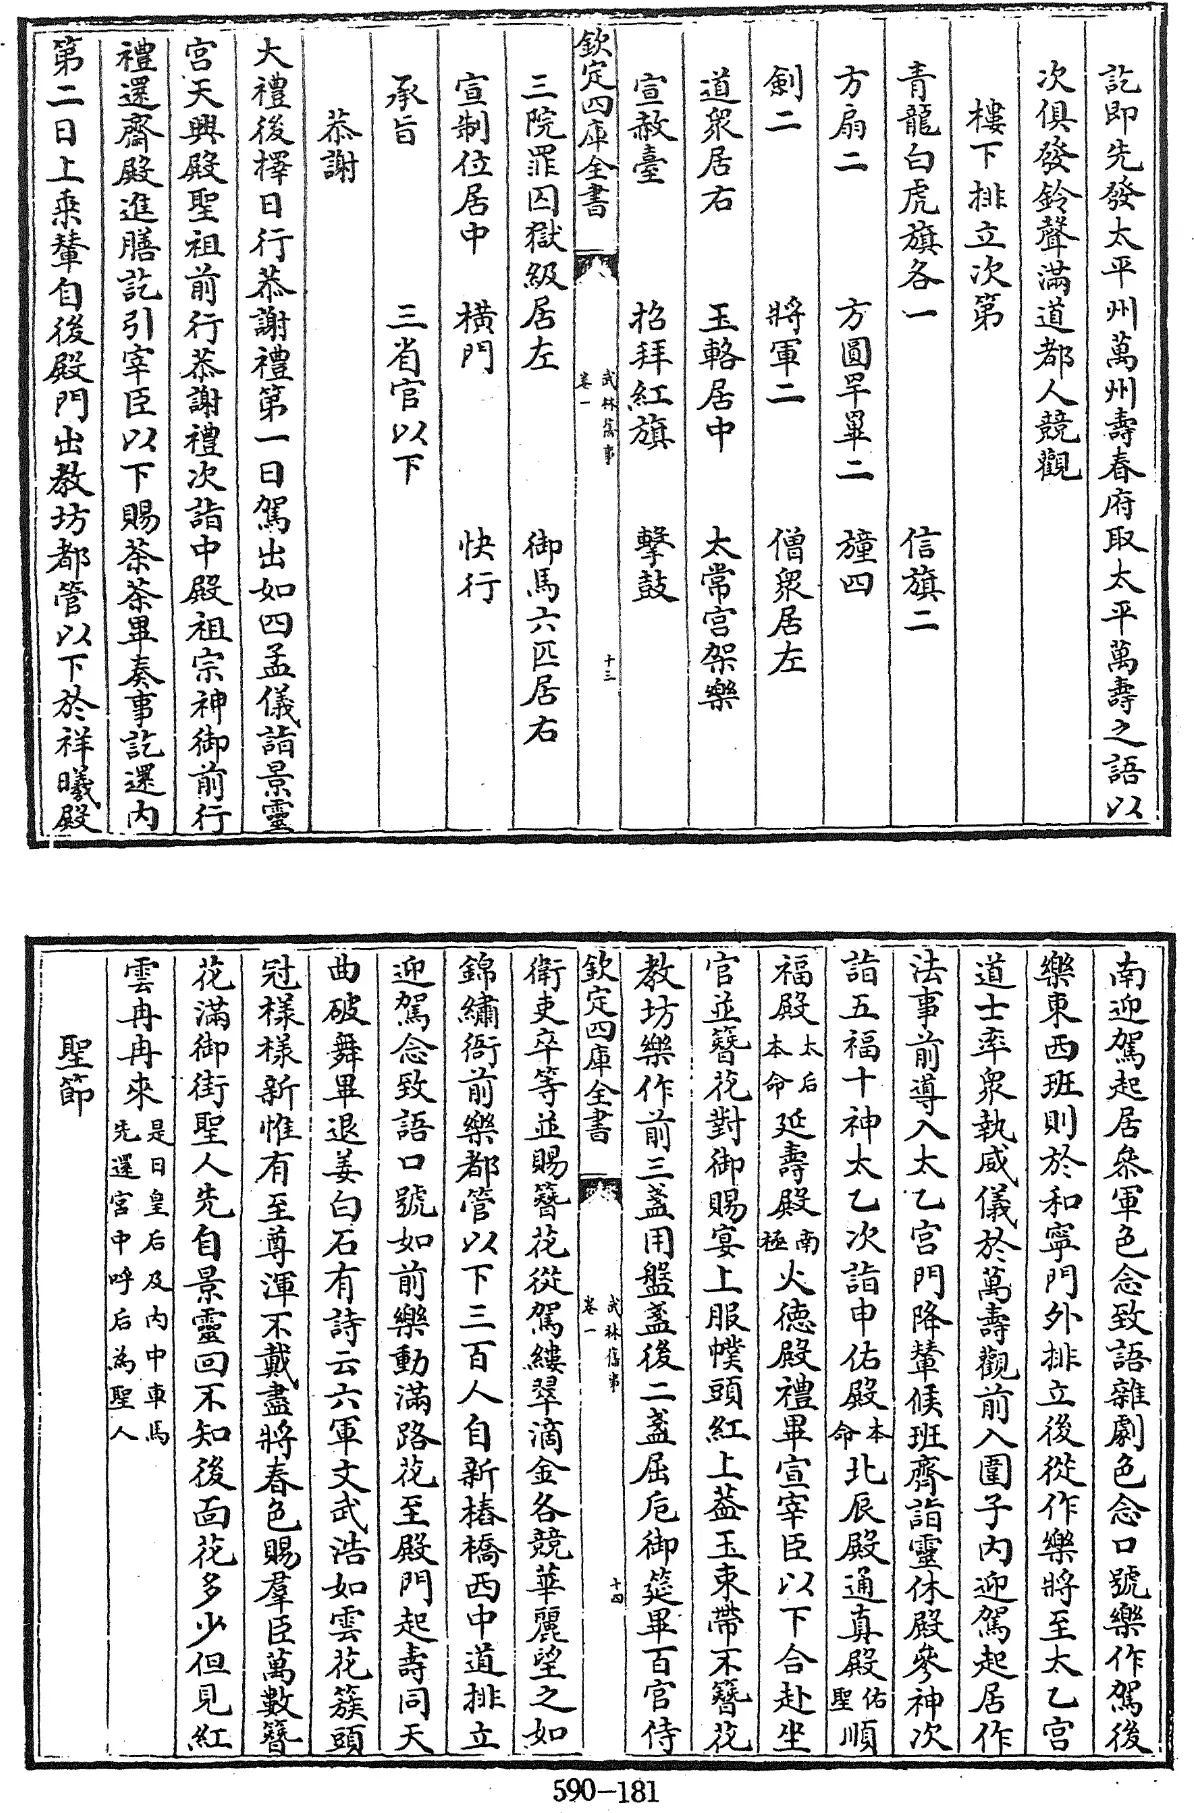 訖即先發太平州萬州壽春府取太平萬壽之語以
次俱發鈴聲滿道都人競觀
樓下排立次第
青龍白虎旗各一　信旗二
方扇二　方圓罕罼二　幢四
劍二　將軍二　僧衆居左
道衆居右　玉輅居中　太常宮架樂
宣赦臺　招拜紅旗　擊鼓
欽定四庫全書　武林舊事　卷一　十三
三院罪囚獄級居左　御馬六匹居右
宣制位居中　橫門　快行
承旨　三省官以下
恭謝
大禮後擇日行恭謝禮第一日駕出如四孟儀詣景靈
宮天興殿聖祖前行恭謝禮次詣中殿祖宗神御前行
禮還齋殿進膳訖引宰臣以下賜茶茶畢奏事訖還內
第二日上乘輦自後殿門出教坊都管以下於祥曦殿
南迎駕起居叅軍色念致語雜劇色念口號樂作駕後
樂東西班則於和寧門外排立後從作樂將至太乙宮
道士率衆執威儀於萬壽觀前入圍子內迎駕起居作
法事前導入太乙宮門降輦候班齊詣靈休殿參神次
詣五福十神太乙次詣申佑殿本命北辰殿通真殿佑聖順
福殿太后本命延壽殿南極火德殿禮畢宣宰臣以下合赴坐
官並簪花對御賜宴上服幞頭紅上葢玉束帶不簪花
教坊樂作前三盞用盤盞後二盞屈卮御筵畢百官侍
欽定四庫全書　武林舊事　卷一　十四
衛吏卒等並賜簪花從駕縷翠滴金各競華麗望之如
錦繡衙前樂都管以下三百人自新樁橋西中道排立
迎駕念致語口號如前樂動滿路花至殿門起壽同天
曲破舞畢退姜白石有詩云六軍文武浩如雲花簇頭
冠樣樣新惟有至尊渾不戴盡將春色賜羣臣萬數簪
花滿御街聖人先自景靈回不知後面花多少但見紅
雲冉冉來是日皇后及內中車馬先還宮中呼后為聖人
聖節
590-181